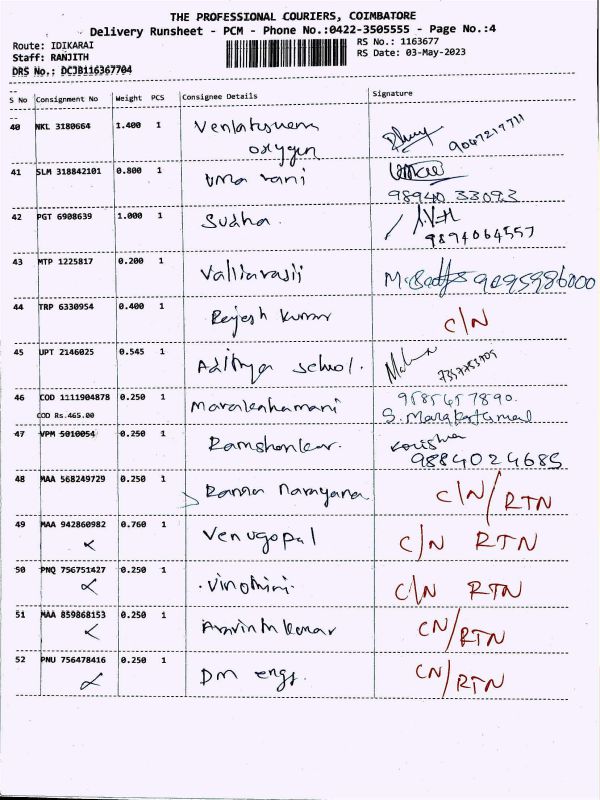 THE PROFESSIONAL COURIERS, COIMBATORE
Delivery Runsheet - PCM - Phone No.:0422-3505555 - Page No.:4
Route: IDIKARAI
RS No.: 1163677
Staff: RANJITH
RS Date: 03-May-2023
DRS No.: DCJB116367704
S No Consignment No Weight PCS Consignee Details Signature
40 NKL 3180664 1.400 1
oxygen 9047217711
41 SLM 318842101 0.800 1 Uma rani
98940 33093
42 PGT 6908639 1.000 1 Sudha.
9894064557
43 MTP 1225817 0.200 1
44 TRP 6330954 0.400 1 Rejesh Kumar C/N
45 UPT 2146025 0.545 1 Adithya School.
46 COD 1111904878 0.250 1 9585657890.
COD Rs.465.00
47 VPM 5010054 0.250 1 Ramshankar.
9884024685
48 MAA 568249729 0.250 1 Narayana C/N/RTN
49 MAA 942860982 0.760 1 Venugopal C/N RTN
50 PNQ 756751427 0.250 1 Vinothini. C/N RTN
51 MAA 859868153 0.250 1 CN/RTN
52 PNU 756478416 0.250 1 Dm engg. CN/RTN